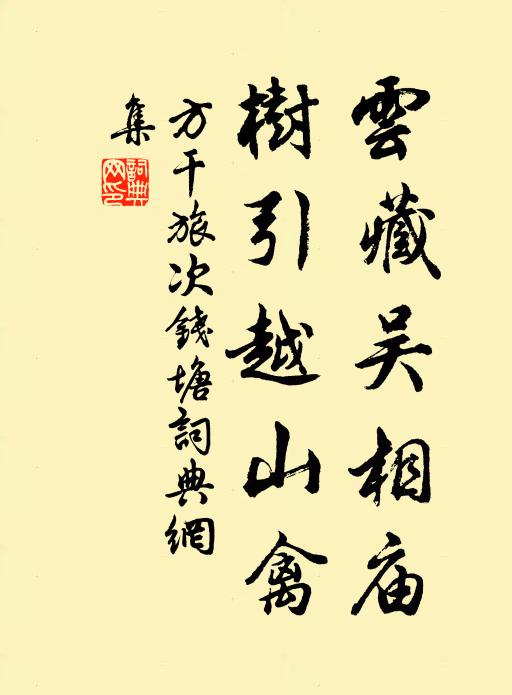 雲藏吴相庙
樹引越山禽
方干旅次錢塘詞典網
集
詞典
网印